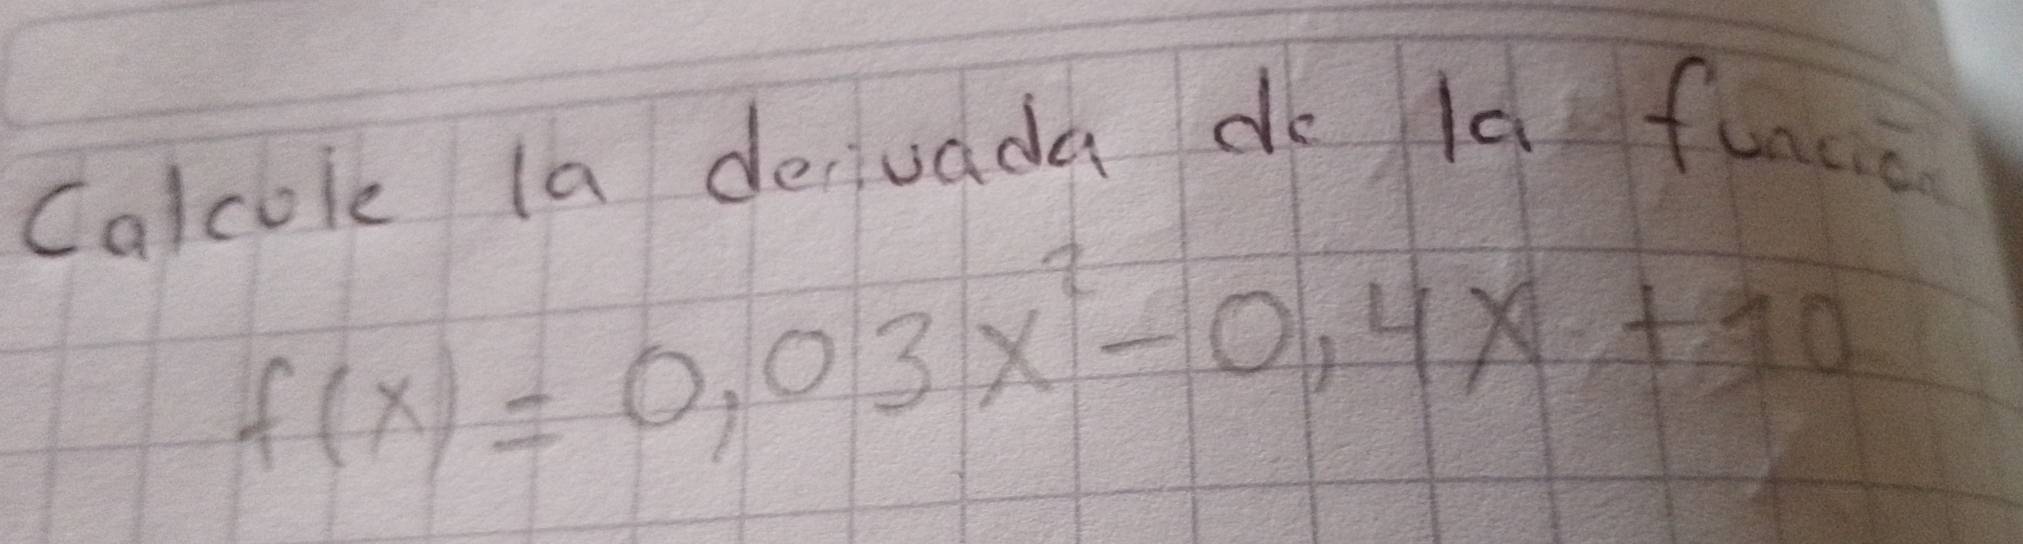 Calcule la derivada de la función
f(x) = 0,03x² - 0,4x + 10